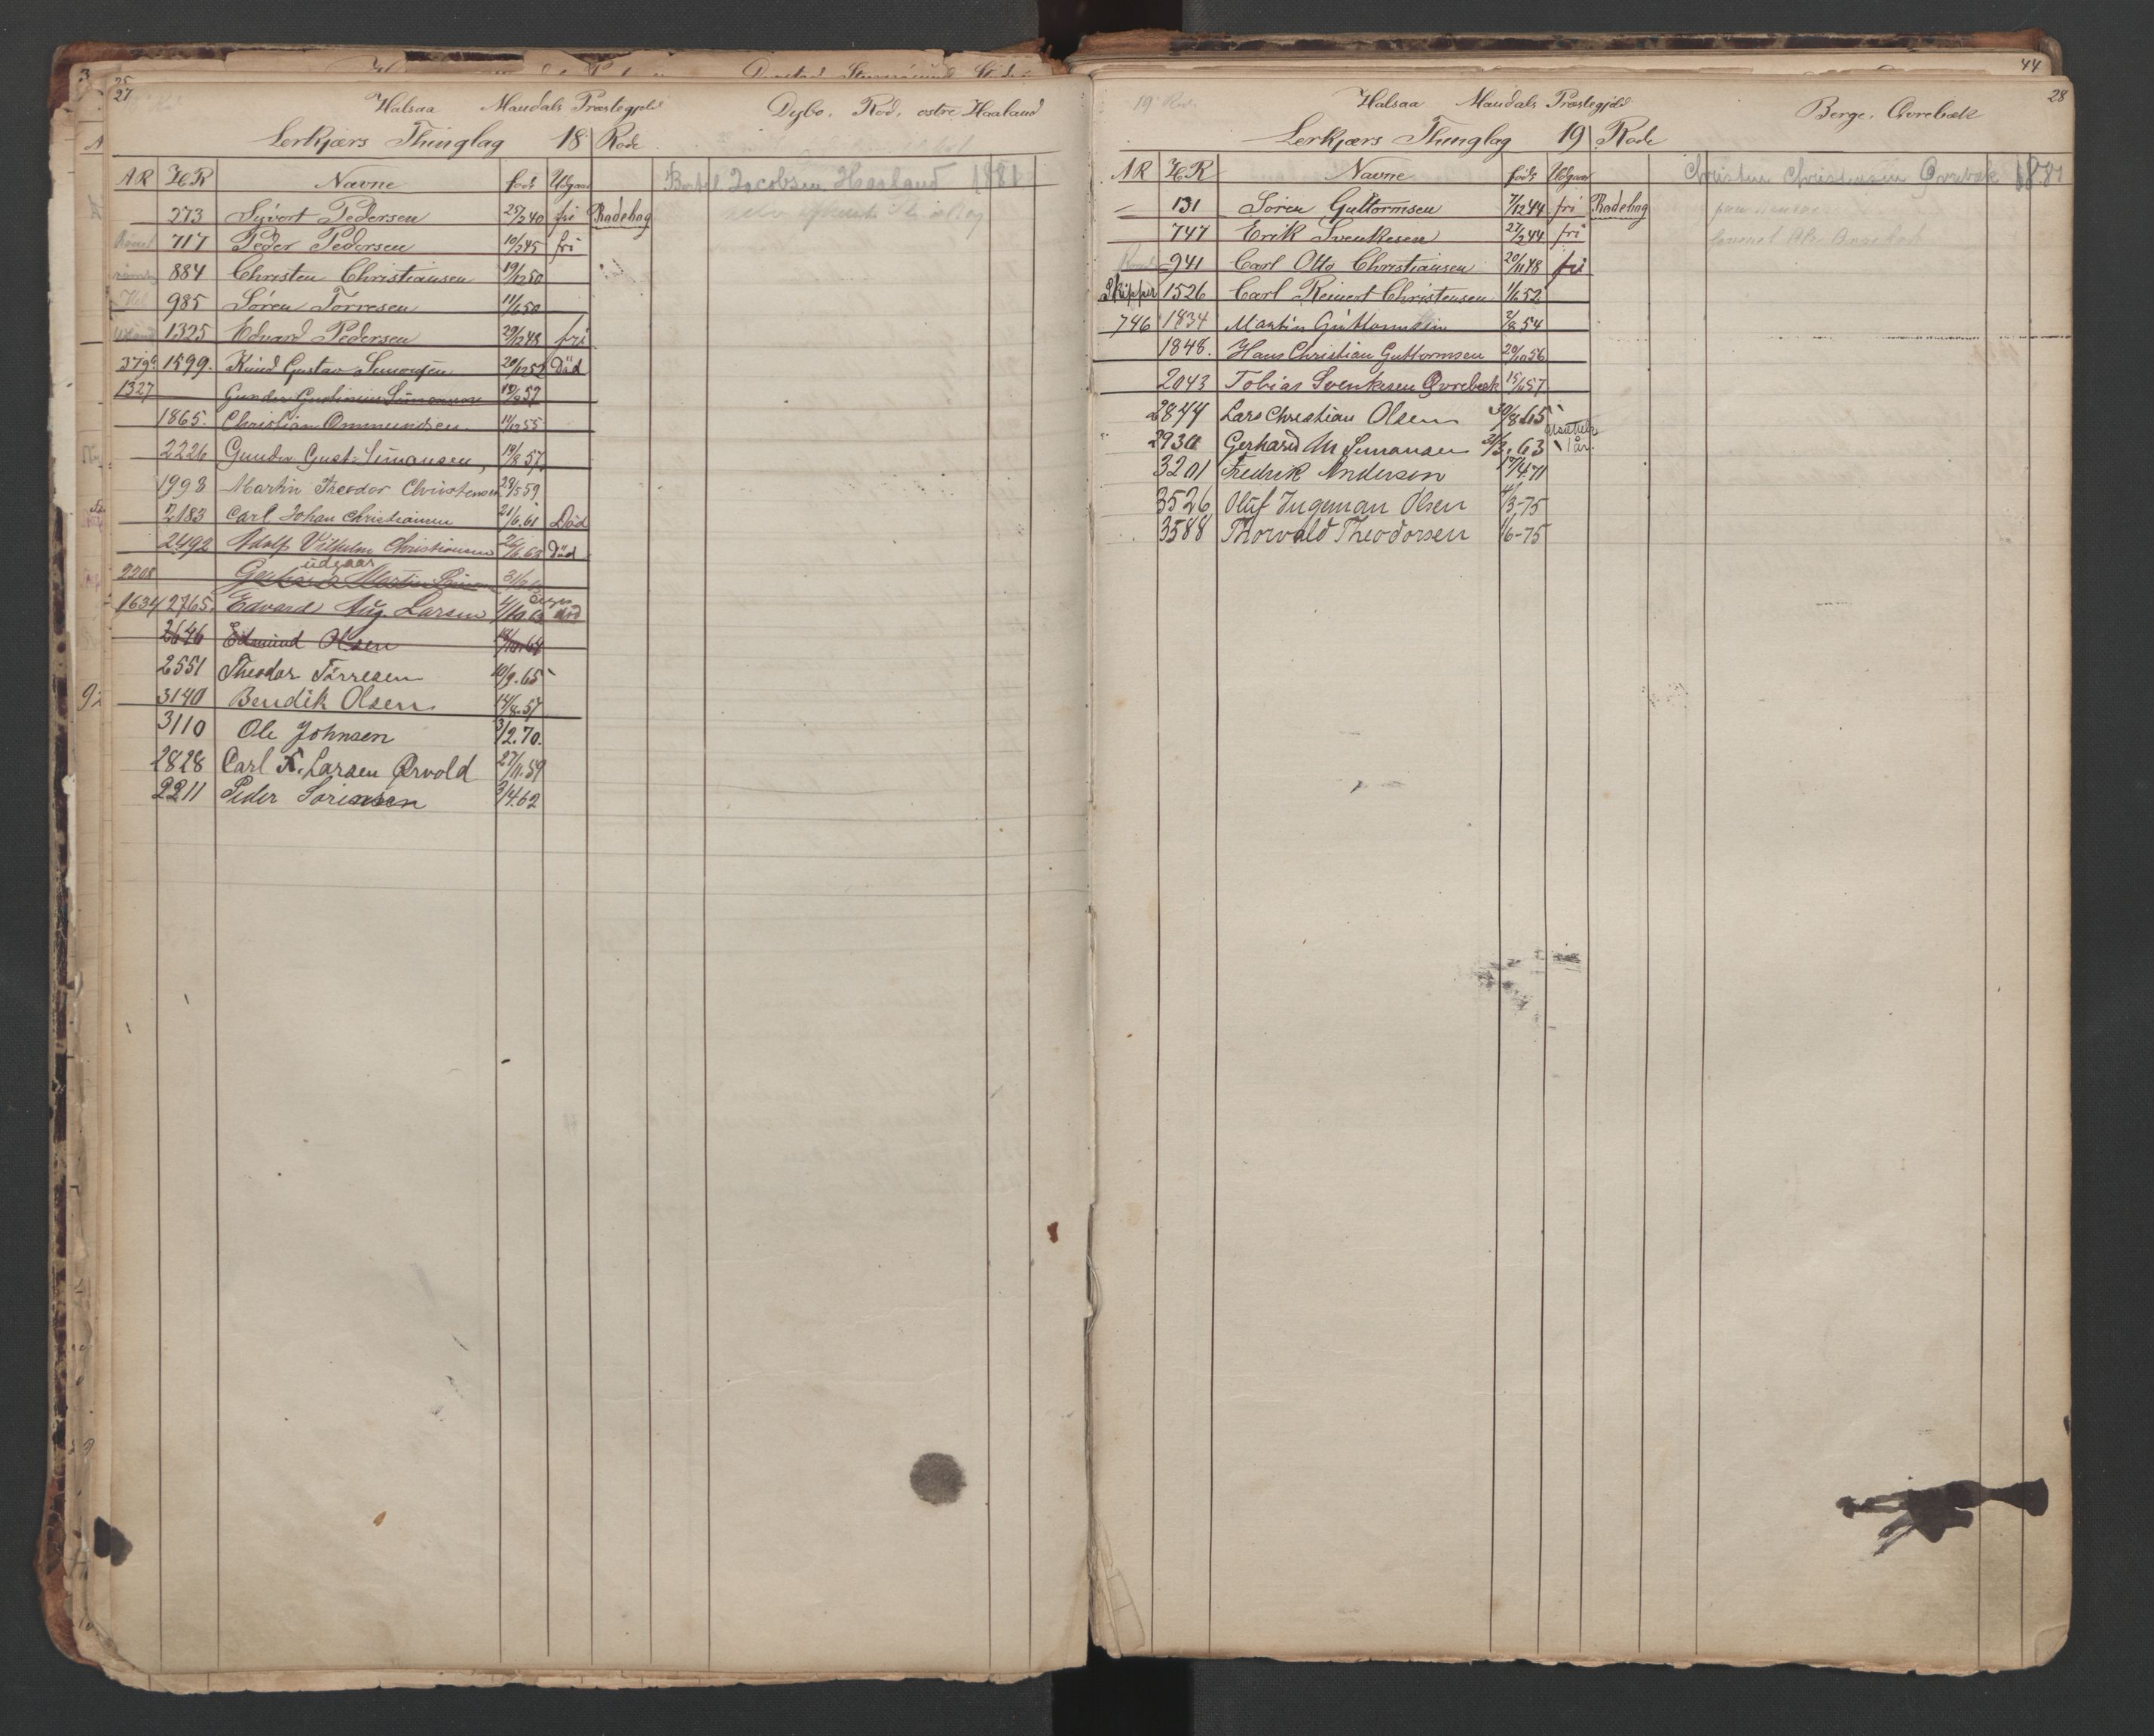 25
27
Halsaa Mandals Præstegjeld Dybo, Rød, østre Haaland
Lerkjærs Thinglag 18 Rode
AR HR Navne født Udgaar Bertel Jacobsen Haaland 1881
273 Syvert Pedersen 25/2 40 fri Rodebog
717 Peder Pedersen 10/2 45 fri
884 Christen Christiansen 19/12 50
985 Sören Torresen 11/6 50
1325 Edvard Pedersen 29/12 48 fri
379 1599. Knud Gustav Simonsen 20/12 52 Död
1327 Gunder Gustinius Simonsen 19/8 57
1865. Christian Ommundsen 14/12 55
2226 Gunder Gust. Simonsen, 19/8 57
1998 Martin Theodor Christensen 29/5 59
2183 Carl Johan Christiansen 21/6.61 Död
2492 Adolf Vilhelm Christiansen 26/6 63 Död
udgaar
2208 Gerhard Martin
1634 2765. Edvard Aug. Larsen 4/10.63 död
2646 Edmund Olsen 18/10.64
2551 Theodor Törresen 10/9.65
3140 Bendik Olsen 14/8.57
3110 Ole Johnsen 3/2.70.
2828 Carl A. Larsen Ørvold 27/11.59
2211 Peder Sörensen 3/4.62
44
28
19 Rode
Halsaa Mandals Præstegjeld Berge, Øvrebæk
Lerkjærs Thinglag 19 Rode
AR HR Navne født Udgaar Christen Christensen Øvrebæk 1881
131 Sören Guttormsen 7/12 44 fri Rodebog
747 Erik Svenkesen 27/2 44 fri
941 Carl Otto Christiansen 20/11 48 fri
Skipper 1526 Carl Reinert Christensen 1/6 52
746 1834 Martin Guttormsen 2/8 54
1848. Hans Christian Guttormsen 20/10 56
2043 Tobias Svenkesen Øvrebæk 15/6 57
2844 Lars Christian Olsen 30/8 65
2930 Gerhard M Simonsen 31/3.63 1 år.
3201 Fredrik Andersen 17/4.71
3526 Oluf Ingeman Olsen 4/3-75
3588 Thorvald Theodorsen 1/6-75